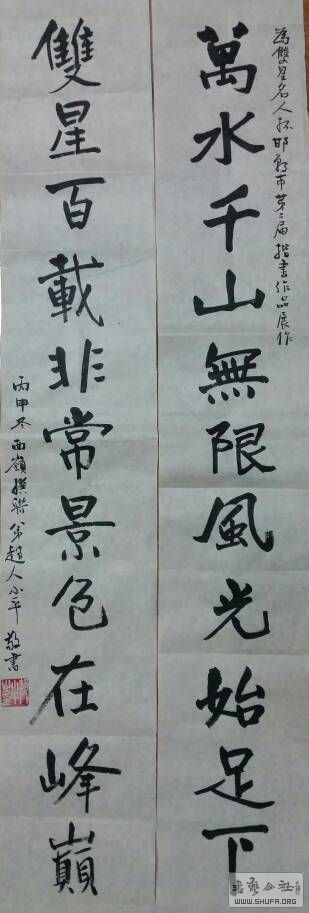 為雙星名人杯邯鄲市第二届楷書作品展作
萬水千山無限風光始足下
雙星百載非常景色在峰巔
丙申冬西嶺撰聯趙人小平敬書
書藝公社
WWW.SHUFA.ORG